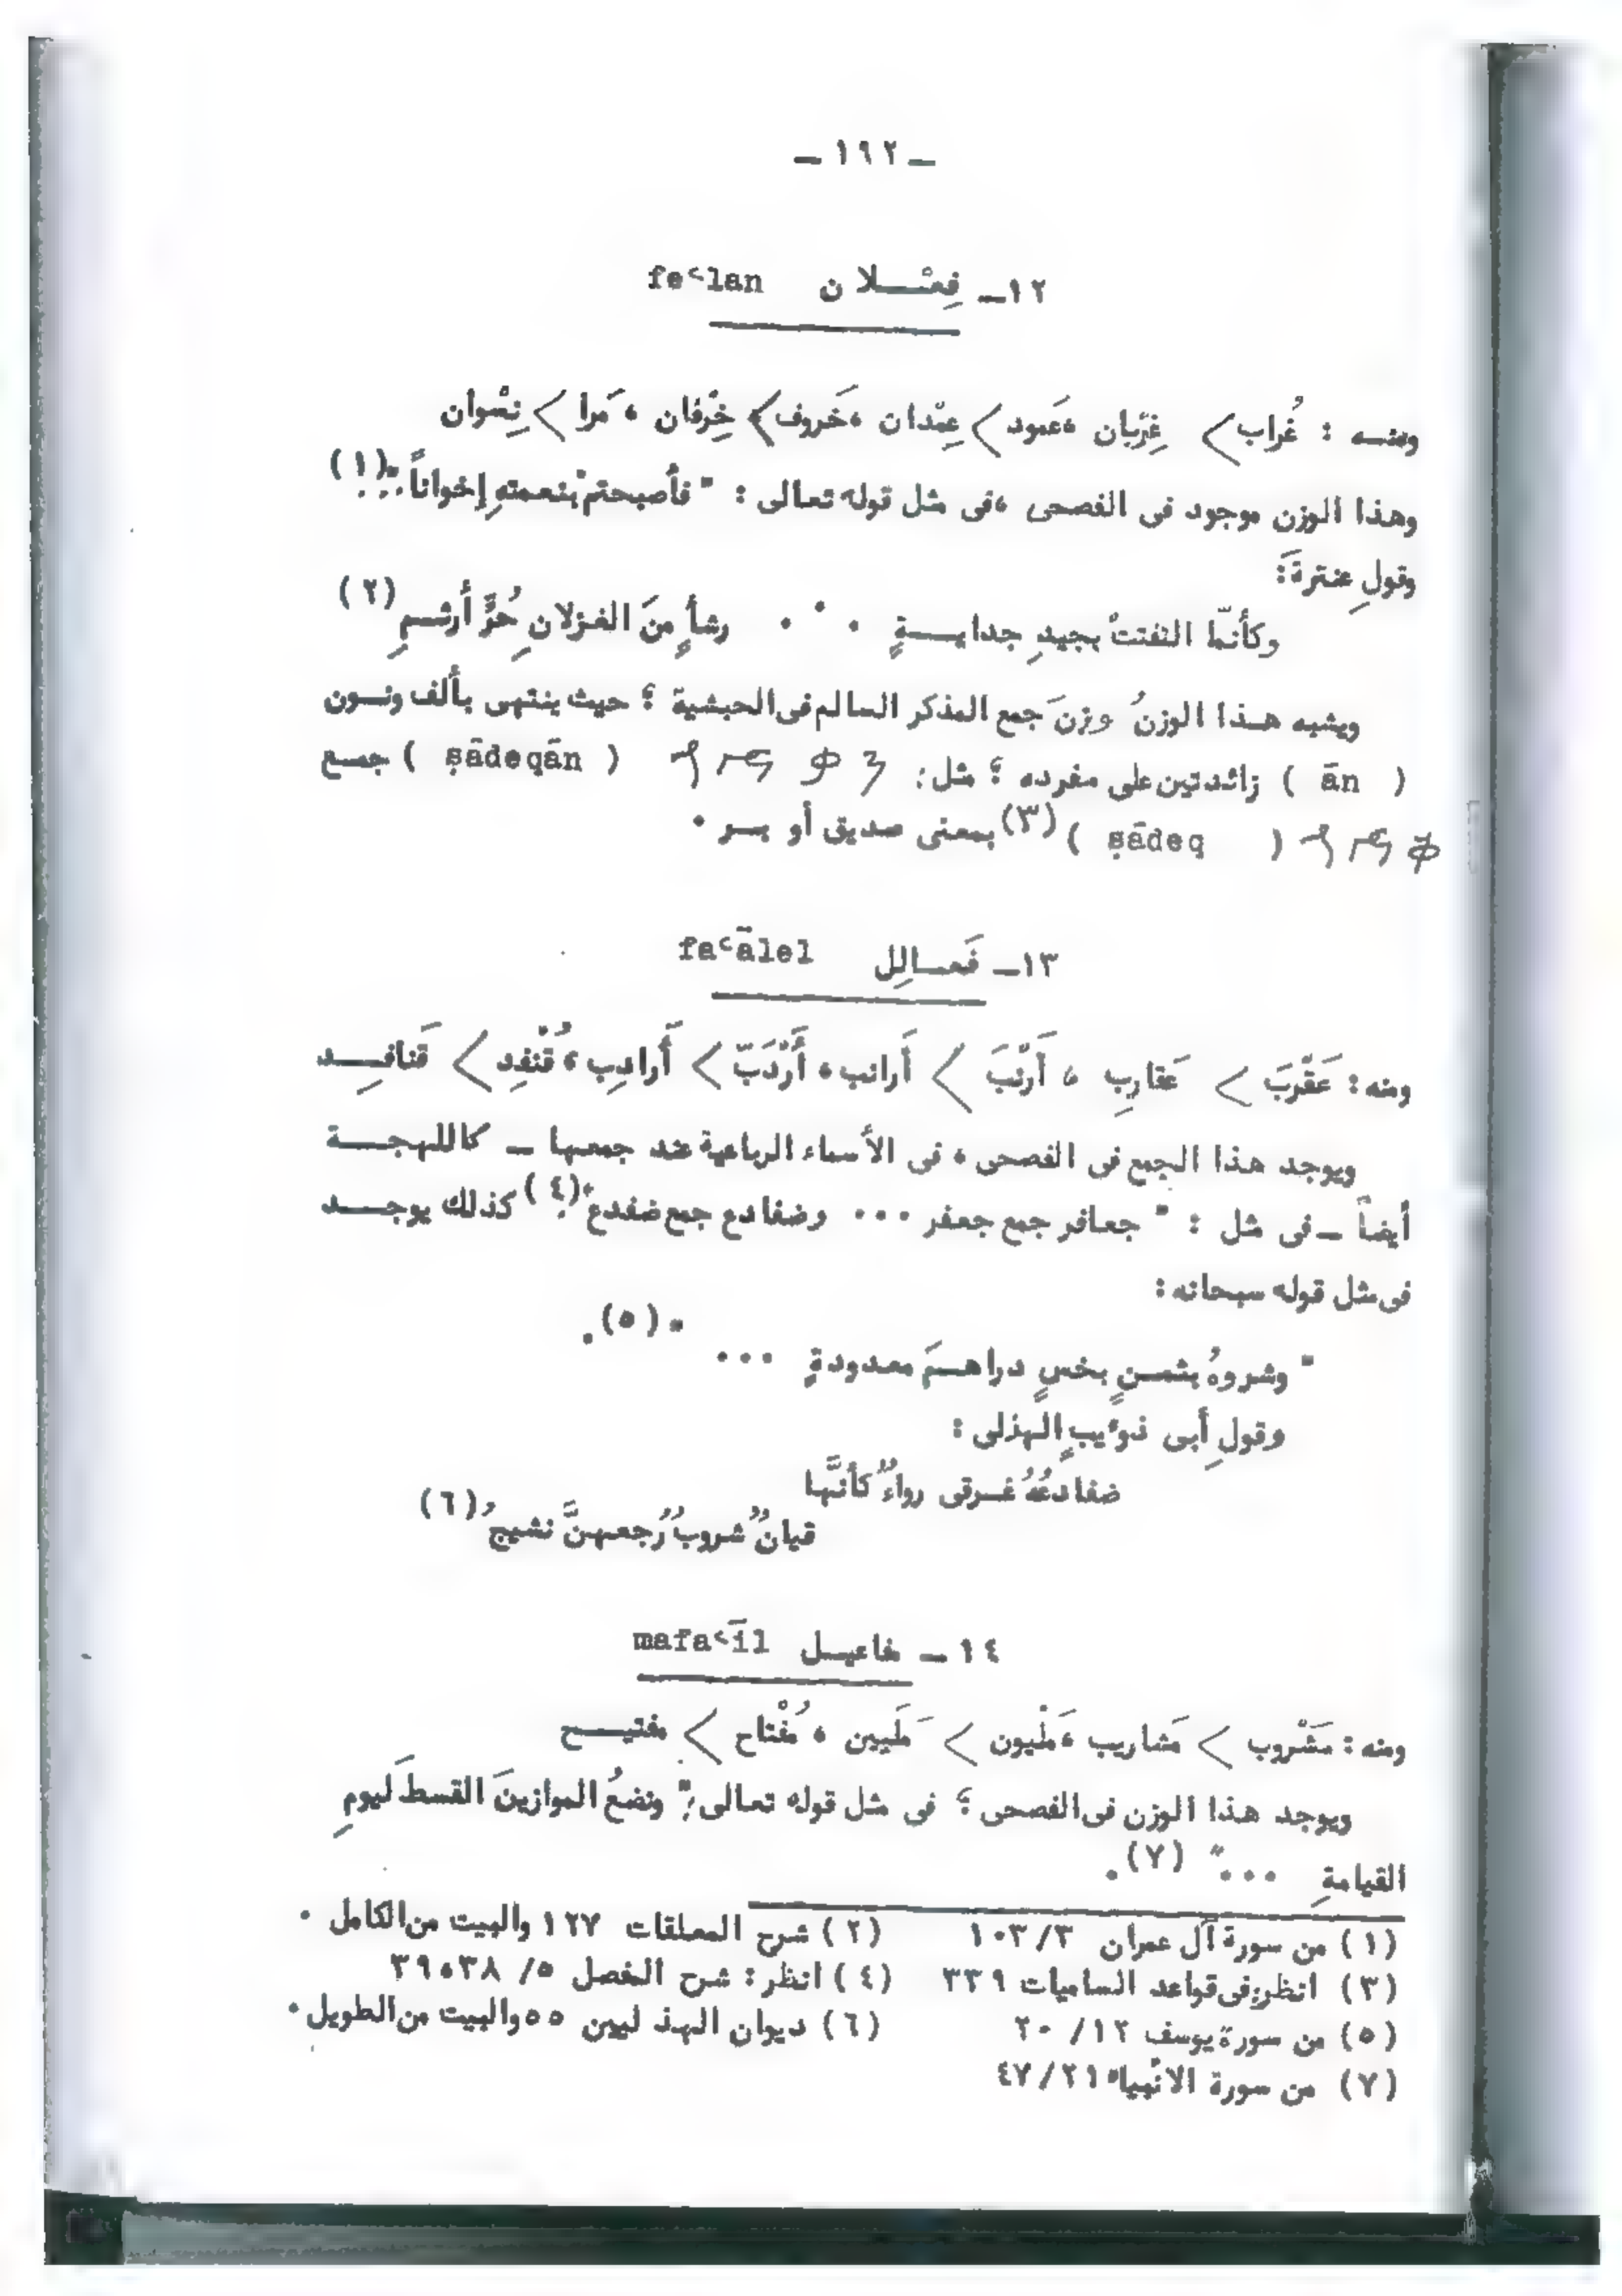 — ١٩٢ —
١٢— فِعْـلان feʿlan
ومنـه : غُراب > غِرْبان ، عَمود > عِمْدان ، خَروف > خِرْفان ، مَرا > نِسْوان
وهذا الوزن موجود فى الفصحى ، فى مثل قوله تعالى : " فأصبحتم بنعمتهِ إخواناً .. " (١).
وقولِ عنترةَ :
وكأنّما التفتتْ بجيدِ جدايـةٍ ∴ رشأٍ منَ الغزلانِ حُرٍّ أرثـمِ (٢)
ويشبه هـذا الوزنُ وزنَ جمع المذكر السالم فى الحبشية ؛ حيث ينتهى بألف ونـون
( ān ) زائدتين على مفرده ؛ مثل : ( ṣādeqān ) جمـع
( ṣādeq ) (٣) بمعنى صديق أو بـر .
١٣— فَعـالِل faʿālel
ومنه : عَقْرَب > عَقارِب ، أَرْنَب > أَرانب ، أَرْدَبّ > أَرادِب ، قُنْفِد > قَنافِـد
ويوجد هذا الجمع فى الفصحى ، فى الأسماء الرباعية عند جمعها — كاللهجـة
أيضاً — فى مثل : " جعافر جمع جعفر ... وضفادع جمع ضفدع " (٤). كذلك يوجـد
فى مثل قوله سبحانه :
" وشروهُ بثمـنٍ بخسٍ دراهـمَ معدودةٍ ... " (٥).
وقولِ أبى ذوءيبٍ الهذلى :
ضفادعُهُ غـرقى رواءٌ كأنَّها
قيانٌ شروبٌ رَجعهنَّ نشيجُ (٦)
١٤ — مفاعيـل mafaʿīl
ومنه : مَشْروب > مَشاريب ، مَلْيون > مَلَيين ، مُفْتاح > مفتيـح
ويوجد هذا الوزن فى الفصحى ؛ فى مثل قوله تعالى : " ونضعُ الموازينَ القسطَ ليومِ
القيامةِ ... " (٧).
(١) من سورة آل عمران ٣/ ١٠٣ (٢) شرح المعلقات ١٢٧ والبيت من الكامل .
(٣) انظر : فى قواعد الساميات ٣٣٩ (٤) انظر : شرح المفصل ٥/ ٣٨، ٣٩
(٥) من سورة يوسف ١٢/ ٢٠ (٦) ديوان الهذليين ٥٥ والبيت من الطويل .
(٧) من سورة الانبياء ٢١/ ٤٧